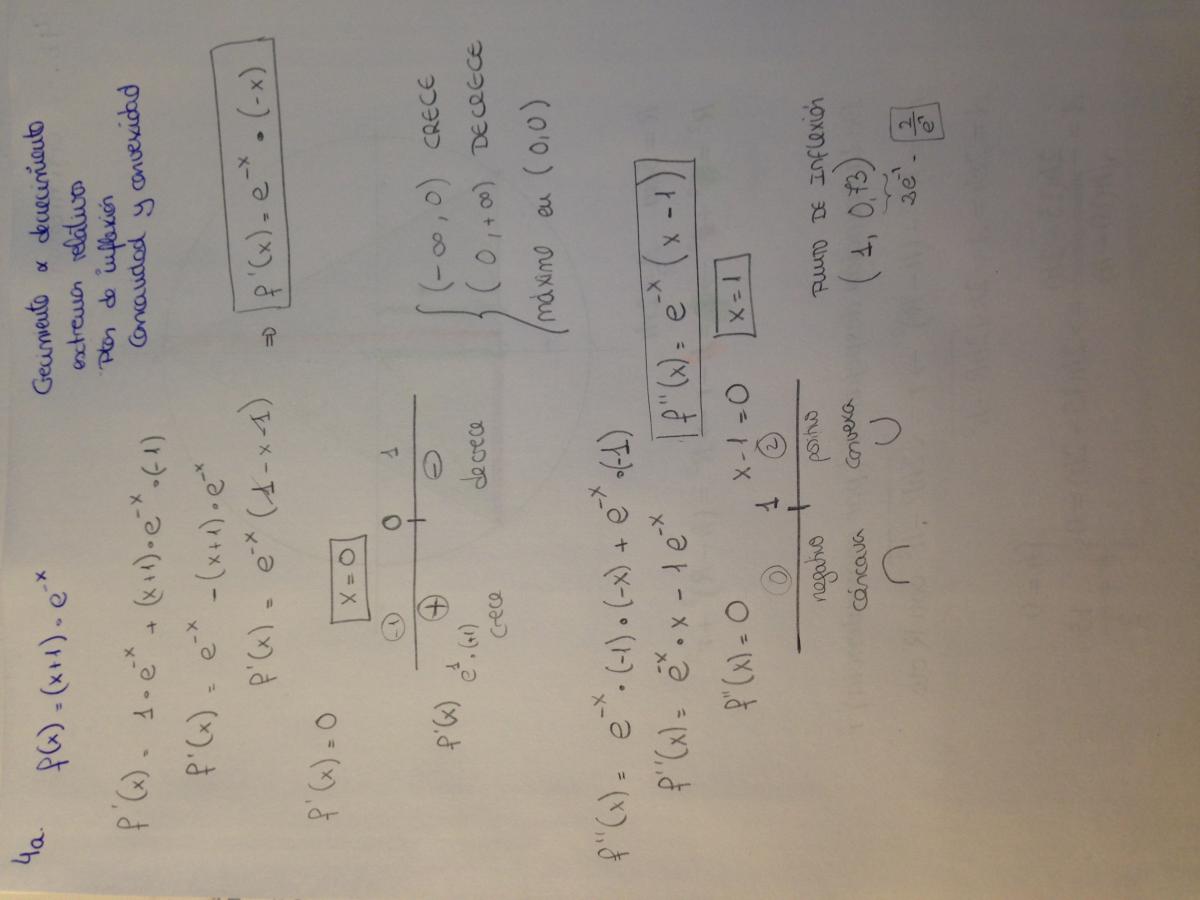 4a. f(x) = (x+1)·e^-x
Crecimiento α decrecimiento
extremos relativos
Ptos de inflexión
Concavidad y convexidad
f'(x) = 1·e^-x + (x+1)·e^-x·(-1)
f'(x) = e^-x - (x+1)·e^-x
f'(x) = e^-x (1-x-1) ⇒ f'(x) = e^-x · (-x)
f'(x)=0 x=0
-1 0 1
f'(x) + -
e^1·(+1)
crece decrece
(-∞, 0) CRECE
(0, +∞) DECRECE
máximo en (0,0)
f''(x) = e^-x·(-1)·(-x) + e^-x·(-1)
f''(x) = e^-x·x - 1e^-x f''(x) = e^-x (x-1)
f''(x)=0 x-1=0 x=1
0 1 2
negativo positivo
cóncava convexa
∩ ∪
PUNTO DE INFLEXIÓN
(1, 0,73)
2e^-1 - 2/e^1